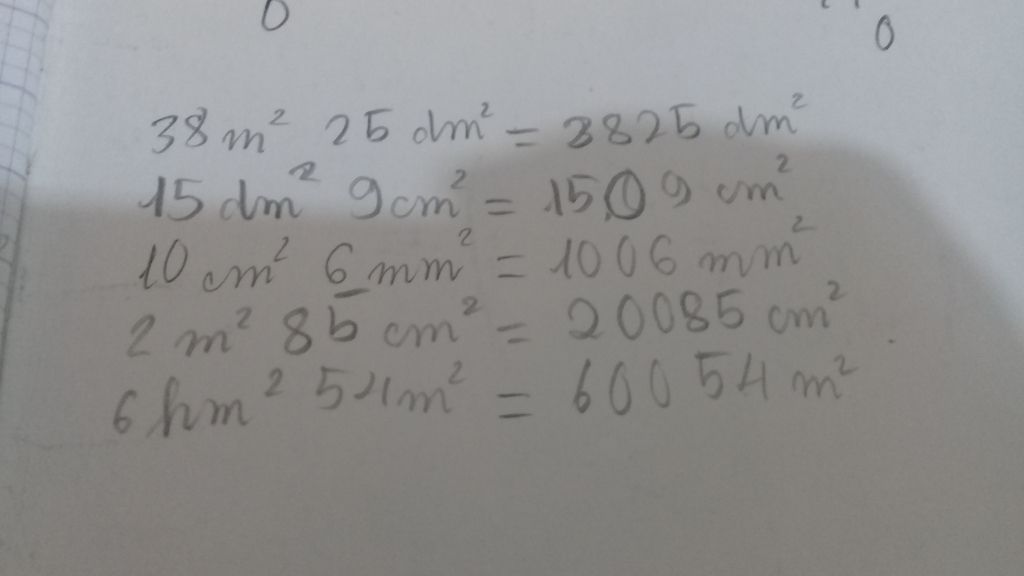 0
0
38 m² 25 dm² = 3825 dm²
15 dm² 9 cm² = 1509 cm²
10 cm² 6 mm² = 1006 mm²
2 m² 85 cm² = 20085 cm²
6 hm² 54 m² = 60054 m²